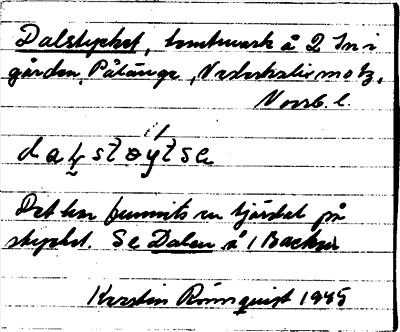 Dalstycket, tomtmark å 2 In i
gården, Pålänge, Nederkalix
Norrb. l.
Det har funnits en tjärdal på
stycket. Se Dalen å 1 Backen
Kerstin Rönnquist 1945